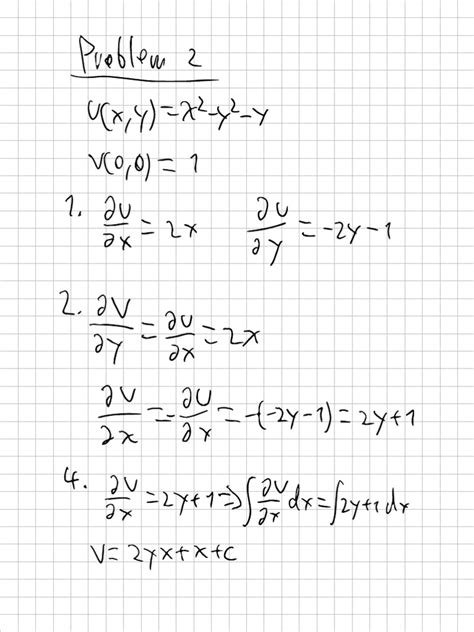 Problem 2
u(x,y)=x²-y²-y
v(0,0)=1
1. ∂u/∂x=2x ∂u/∂y=-2y-1
2. ∂v/∂y=∂u/∂x=2x
∂v/∂x=-∂u/∂x=-(-2y-1)=2y+1
4. ∂v/∂x=2y+1⇒∫∂v/∂x dx=∫2y+1 dx
v=2yx+x+c